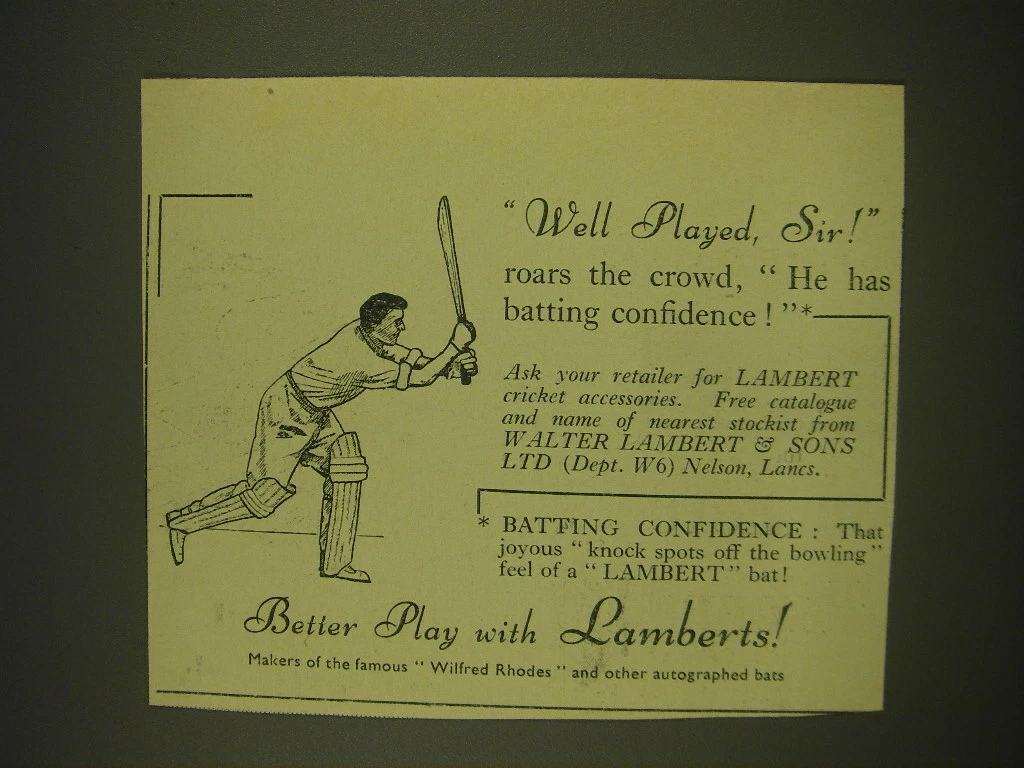 “Well Played, Sir!”
roars the crowd, “He has
batting confidence!”*
Ask your retailer for LAMBERT
cricket accessories. Free catalogue
and name of nearest stockist from
WALTER LAMBERT & SONS
LTD (Dept. W6) Nelson, Lancs.
* BATTING CONFIDENCE : That
joyous “knock spots off the bowling”
feel of a “LAMBERT” bat!
Better Play with Lamberts!
Makers of the famous “Wilfred Rhodes” and other autographed bats